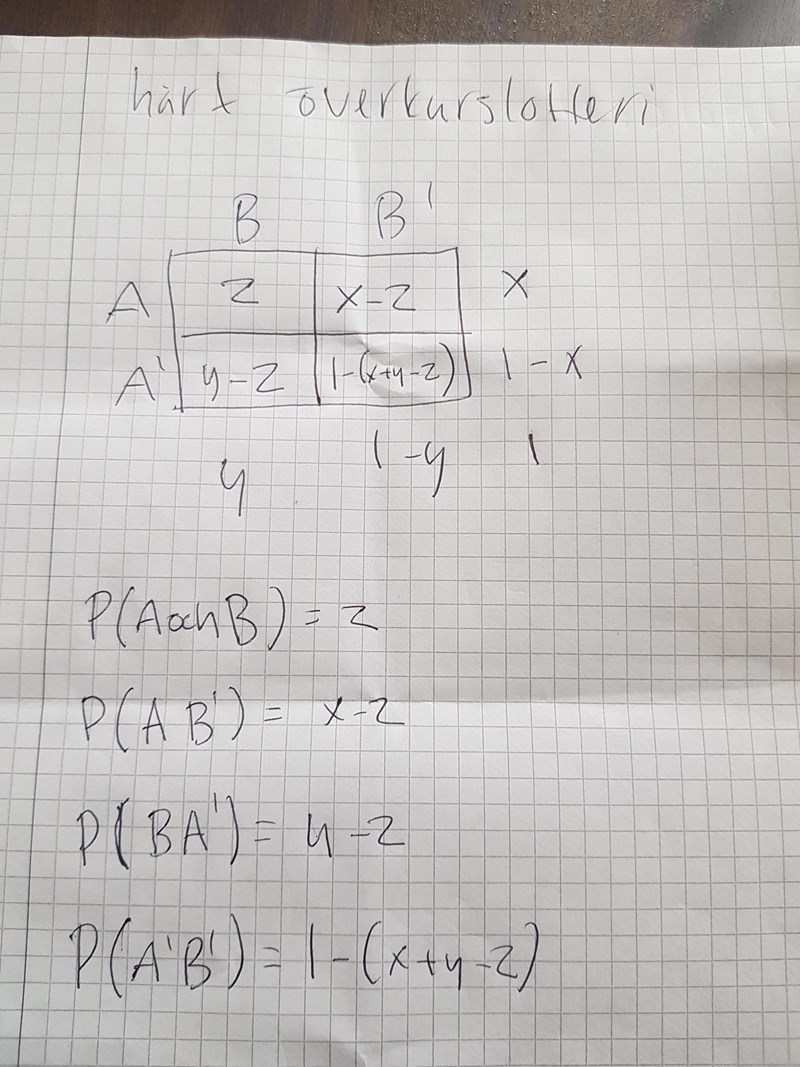 hårt överkurslotteri
B B'
A z x-z x
A' y-z 1-(x+y-z) 1-x
y 1-y 1
P(A och B) = z
P(A B') = x-z
P(BA') = y-z
P(A'B') = 1-(x+y-z)